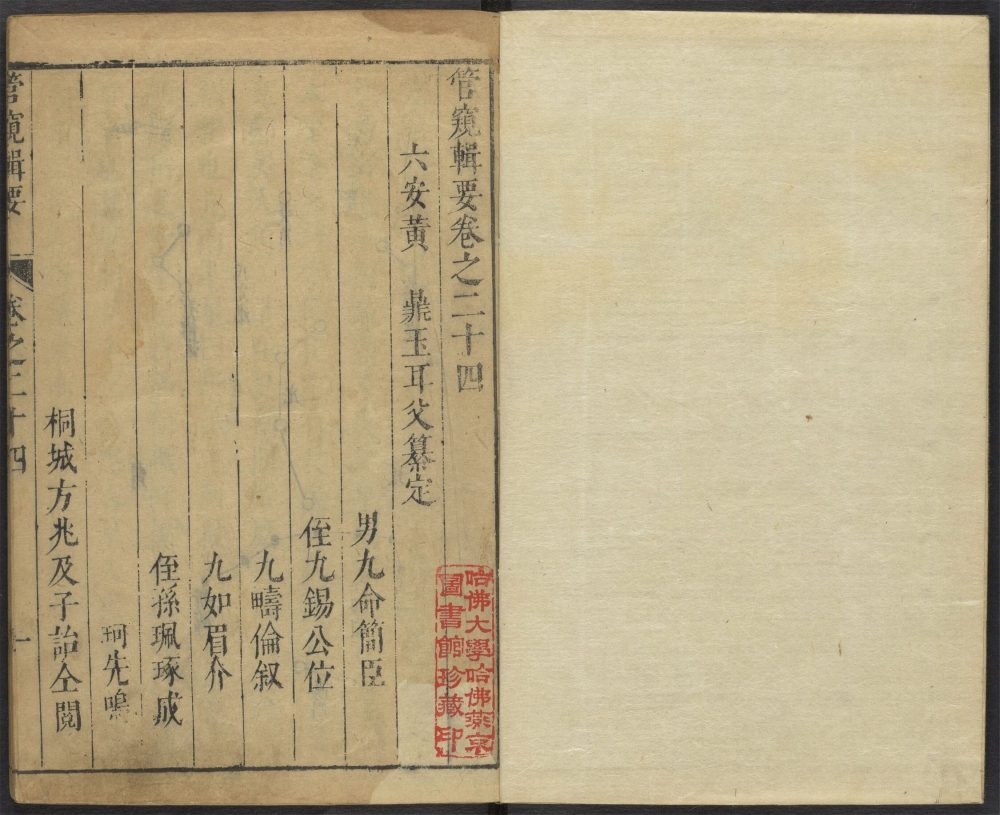 管窺輯要卷之二十四
六安黃　鼎玉耳父纂定
男九命簡臣
侄九錫公位
九疇倫叙
九如眉介
侄孫珮琢成
珂先鳴
桐城方兆及子詒仝閱
管窺輯要
卷之二十四
一
哈佛大學哈佛燕京
圖書館珍藏印